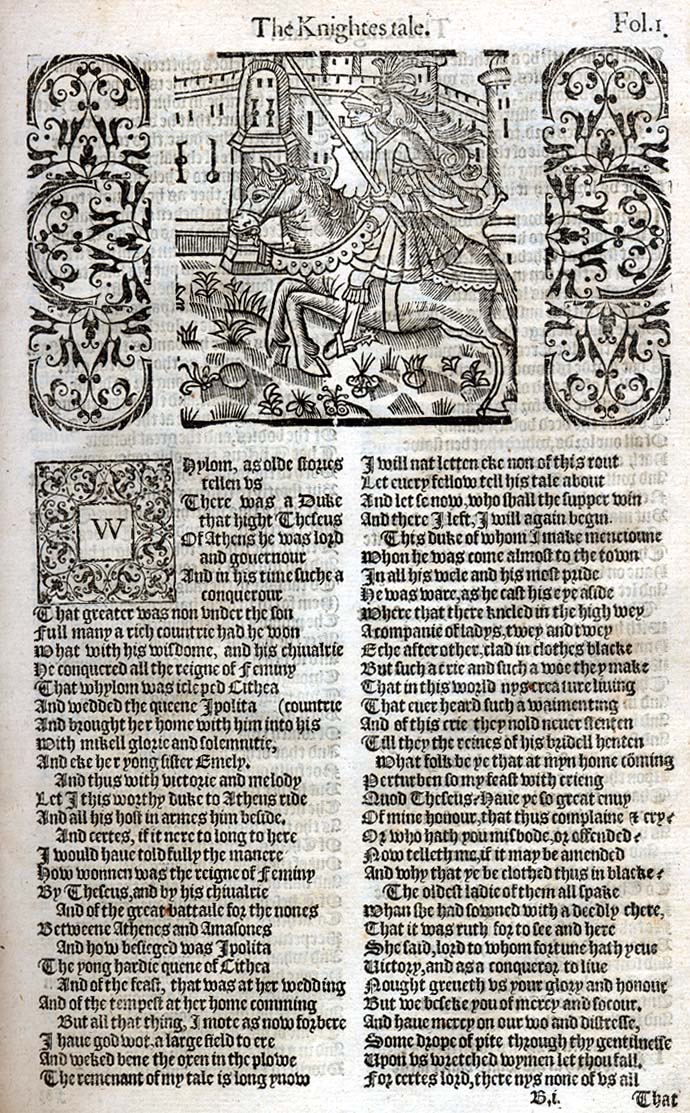 The Knightes tale.
Fol.1.
W
Hylom, as olde stories
tellen vs
There was a Duke
that hight Theseus
Of Athens he was lord
and gouernour
And in his time suche a
conquerour
That greater was non vnder the son
Full many a rich countrie had he won
What with his wisdome, and his chiualrie
He conquered all the reigne of Feminy
That whylom was icleped Cithea
And wedded the queene Ipolita (countrie
And brought her home with him into his
With mikell glorie and solemnitie,
And eke her yong sister Emely.
And thus with victorie and melody
Let I this worthy duke to Athens ride
And all his host in armes him beside.
And certes, if it nere to long to here
I would haue told fully the manere
How wonnen was the reigne of Feminy
By Theseus, and by his chiualrie
And of the great battaile for the nones
Betweene Athenes and Amasones
And how besieged was Ipolita
The yong hardie quene of Cithea
And of the feast, that was at her wedding
And of the tempest at her home comming
But all that thing, I mote as now forbere
I haue god wot a large field to ere
And weked bene the oxen in the plowe
The remenant of my tale is long ynow
I will nat letten eke non of this rout
Let euery fellow tell his tale about
And let se now, who shall the supper win
And there I left, I will again begin.
This duke of whom I make mencioune
Whon he was come almost to the town
In all his wele and his most pride
He was ware, as he cast his eye aside
Where that there kneled in the high wey
A companie of ladys, twey and twey
Eche after other, clad in clothes blacke
But such a crie and such a woe they make
That in this world nys creature liuing
That euer heard such a waimenting
And of this crie they nold neuer stenten
Till they the reines of his bridell henten
What folk be ye that at myn home coming
Perturben so my feast with crieng
Quod Theseus? Haue ye so great enuy
Of mine honour, that thus complaine & cry?
Or who hath you misbode, or offended?
Now telleth me, if it may be amended
And why that ye be clothed thus in blacke?
The oldest ladie of them all spake
Whan she had sowned with a deedly chere,
That it was ruth for to see and here
She said, lord to whom fortune hath yeue
Victory, and as a conqueror to liue
Nought greueth vs your glory and honour
But we beseke you of mercy and socour.
And haue mercy on our wo and distresse,
Some drope of pite through thy gentilnesse
Upon vs wretched wymen let thou fall.
For certes lord, there nys none of vs all
B.i.
That